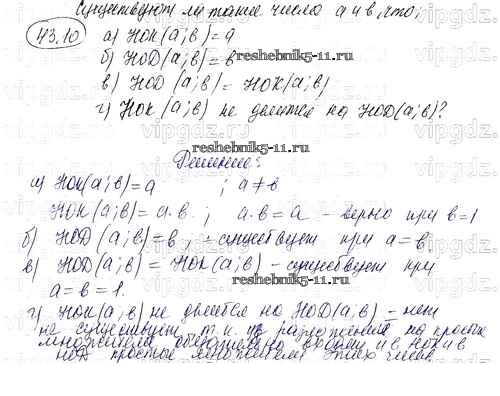 Существуют ли такие число а и в, что;
43.10
а) НОК(а;в)=а
б) НОД(а;в)=в
reshebnik5-11.ru
в) НОД (а;в)= НОК(а;в)
г) НОК (а;в) не делится на НОД(а;в)?
reshebnik5-11.ru
vipgdz.ru
Решение:
а) НОК(а;в)=а ; а≠в
НОК(а;в)=а.в.; а.в=а - верно при в=1
б) НОД(а;в)=в, - существует при а=в
в) НОД(а;в) = НОК(а;в) - существует при
reshebnik5-11.ru
а=в=1.
г) НОК(а;в) не делится на НОД(а;в) - нет
не существует, т.к. в разложения на простые
множители обязательно входят и в НОК и в
НОД простые множители этих чисел.